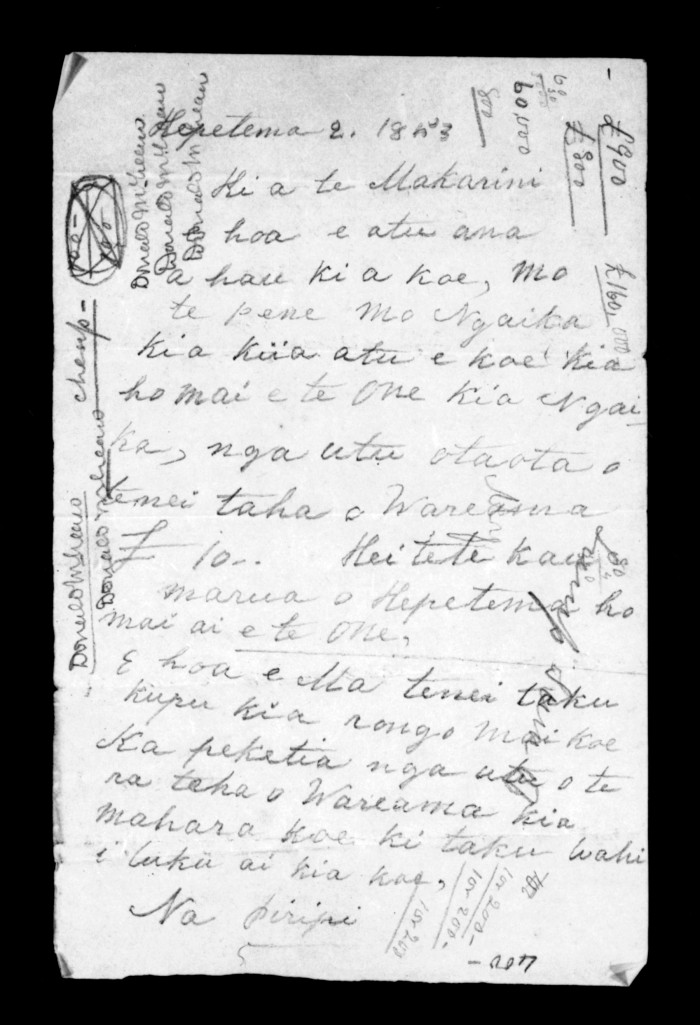 Hepetema 2. 1853
Ki a te Makarini
E hoa e atu ana
a hau ki a koe, mo
te pene mo Ngaika
kia kiia atu e koe kia
ho mai e te One kia Ngai-
ka, nga utu otaota o
tenei taha o Wareama
£ 10.. Hei te te kau
marua o Hepetema ho
mai ai e te One,
E hoa e Ma tenei taku
kupu kia rongo mai koe
Ka peketia nga utu o te
ra taha o Wareama kia
mahara koe ki taku wahi
i tuku ai kia koe,
Na Piripi
Donald McLean
Donald McLean
Donald McLean
Donald McLean
Donald McLean cheap-
£900
£800
£160,000
60,000
800
100
100
100 200
100 200-
100 200-